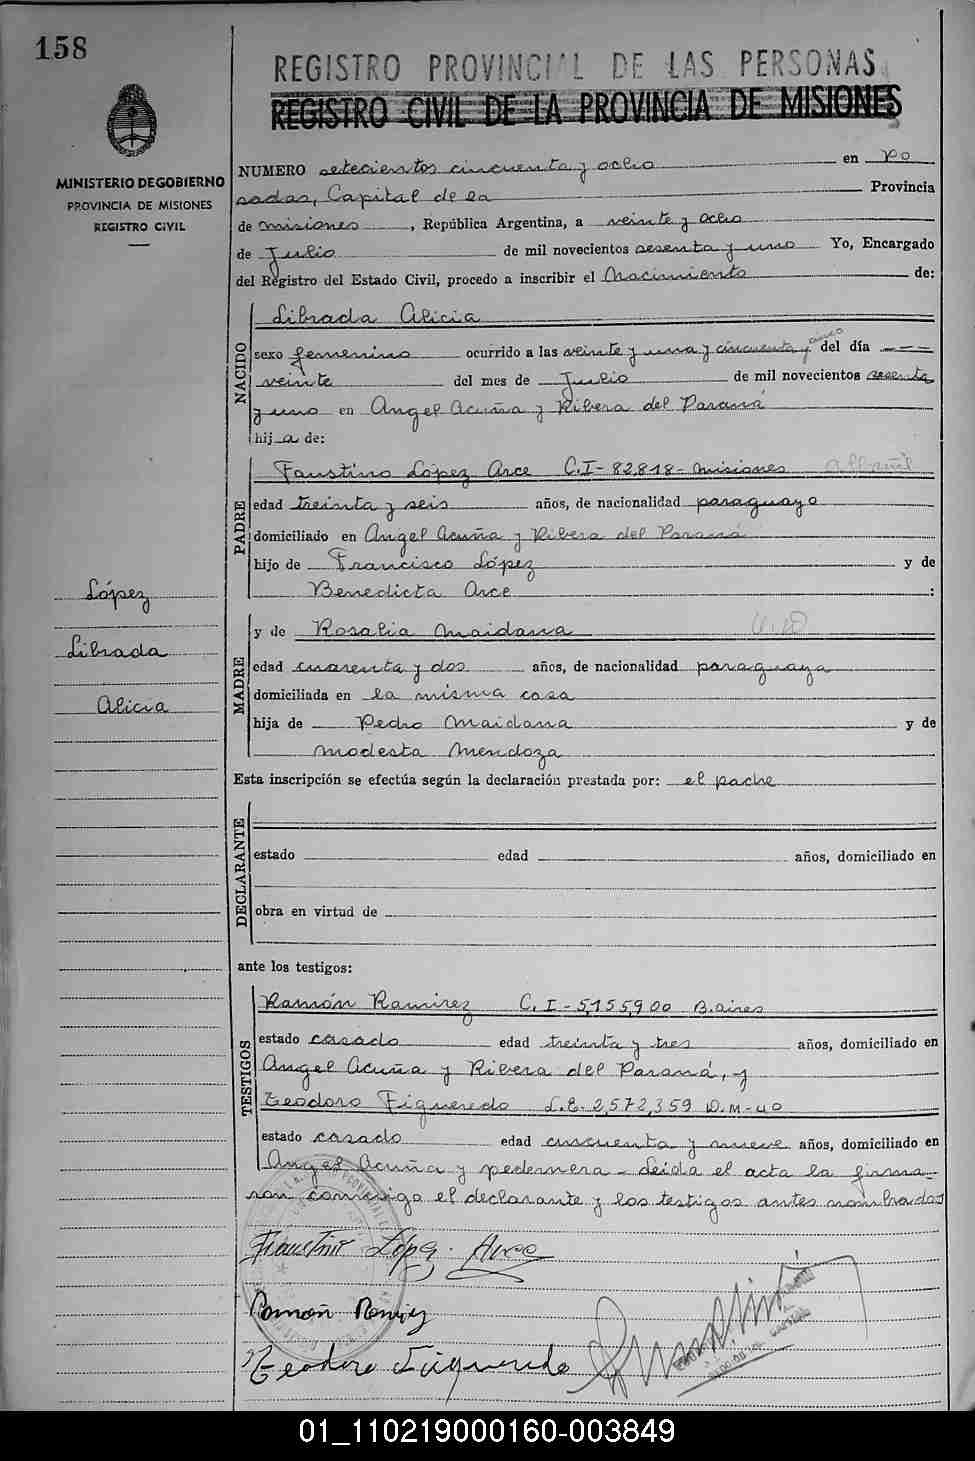 158
REGISTRO PROVINCIAL DE LAS PERSONAS
REGISTRO CIVIL DE LA PROVINCIA DE MISIONES
MINISTERIO DE GOBIERNO
PROVINCIA DE MISIONES
REGISTRO CIVIL
NUMERO setecientos cincuenta y ocho en Po
sadas, Capital de la Provincia
de misiones, República Argentina, a veinte y ocho
de Julio de mil novecientos sesenta y uno Yo, Encargado
del Registro del Estado Civil, procedo a inscribir el Nacimiento de:
NACIDO
Librada Alicia
sexo femenino ocurrido a las veinte y una y cincuenta y cinco del día ---
veinte del mes de Julio de mil novecientos sesenta
y uno en Angel Acuña y Ribera del Paraná
hija de:
PADRE
Faustino López Arce C.I-82,818-misiones Albañil
edad treinta y seis años, de nacionalidad paraguayo
domiciliado en Angel Acuña y Ribera del Paraná
hijo de Francisco López y de
Benedicta Arce :
López
Librada
Alicia
MADRE
y de Rosalia Maidana
edad cuarenta y dos años, de nacionalidad paraguaya
domiciliada en la misma casa
hija de Pedro Maidana y de
Modesta Mendoza
Esta inscripción se efectúa según la declaración prestada por: el padre
DECLARANTE
estado edad años, domiciliado en
obra en virtud de
ante los testigos:
TESTIGOS
Ramón Ramirez C.I-5,155,900 B.aires
estado casado edad treinta y tres años, domiciliado en
Angel Acuña y Ribera del Paraná, y
Teodoro Figueredo L.E. 2,572,359 D.M-40
estado casado edad cincuenta y nueve años, domiciliado en
Angel Acuña y pedernera - Leida el acta la firma-
ron conmigo el declarante y los testigos antes nombrados
Faustino López Arce
Ramón Ramirez
Teodoro Figueredo
01_110219000160-003849